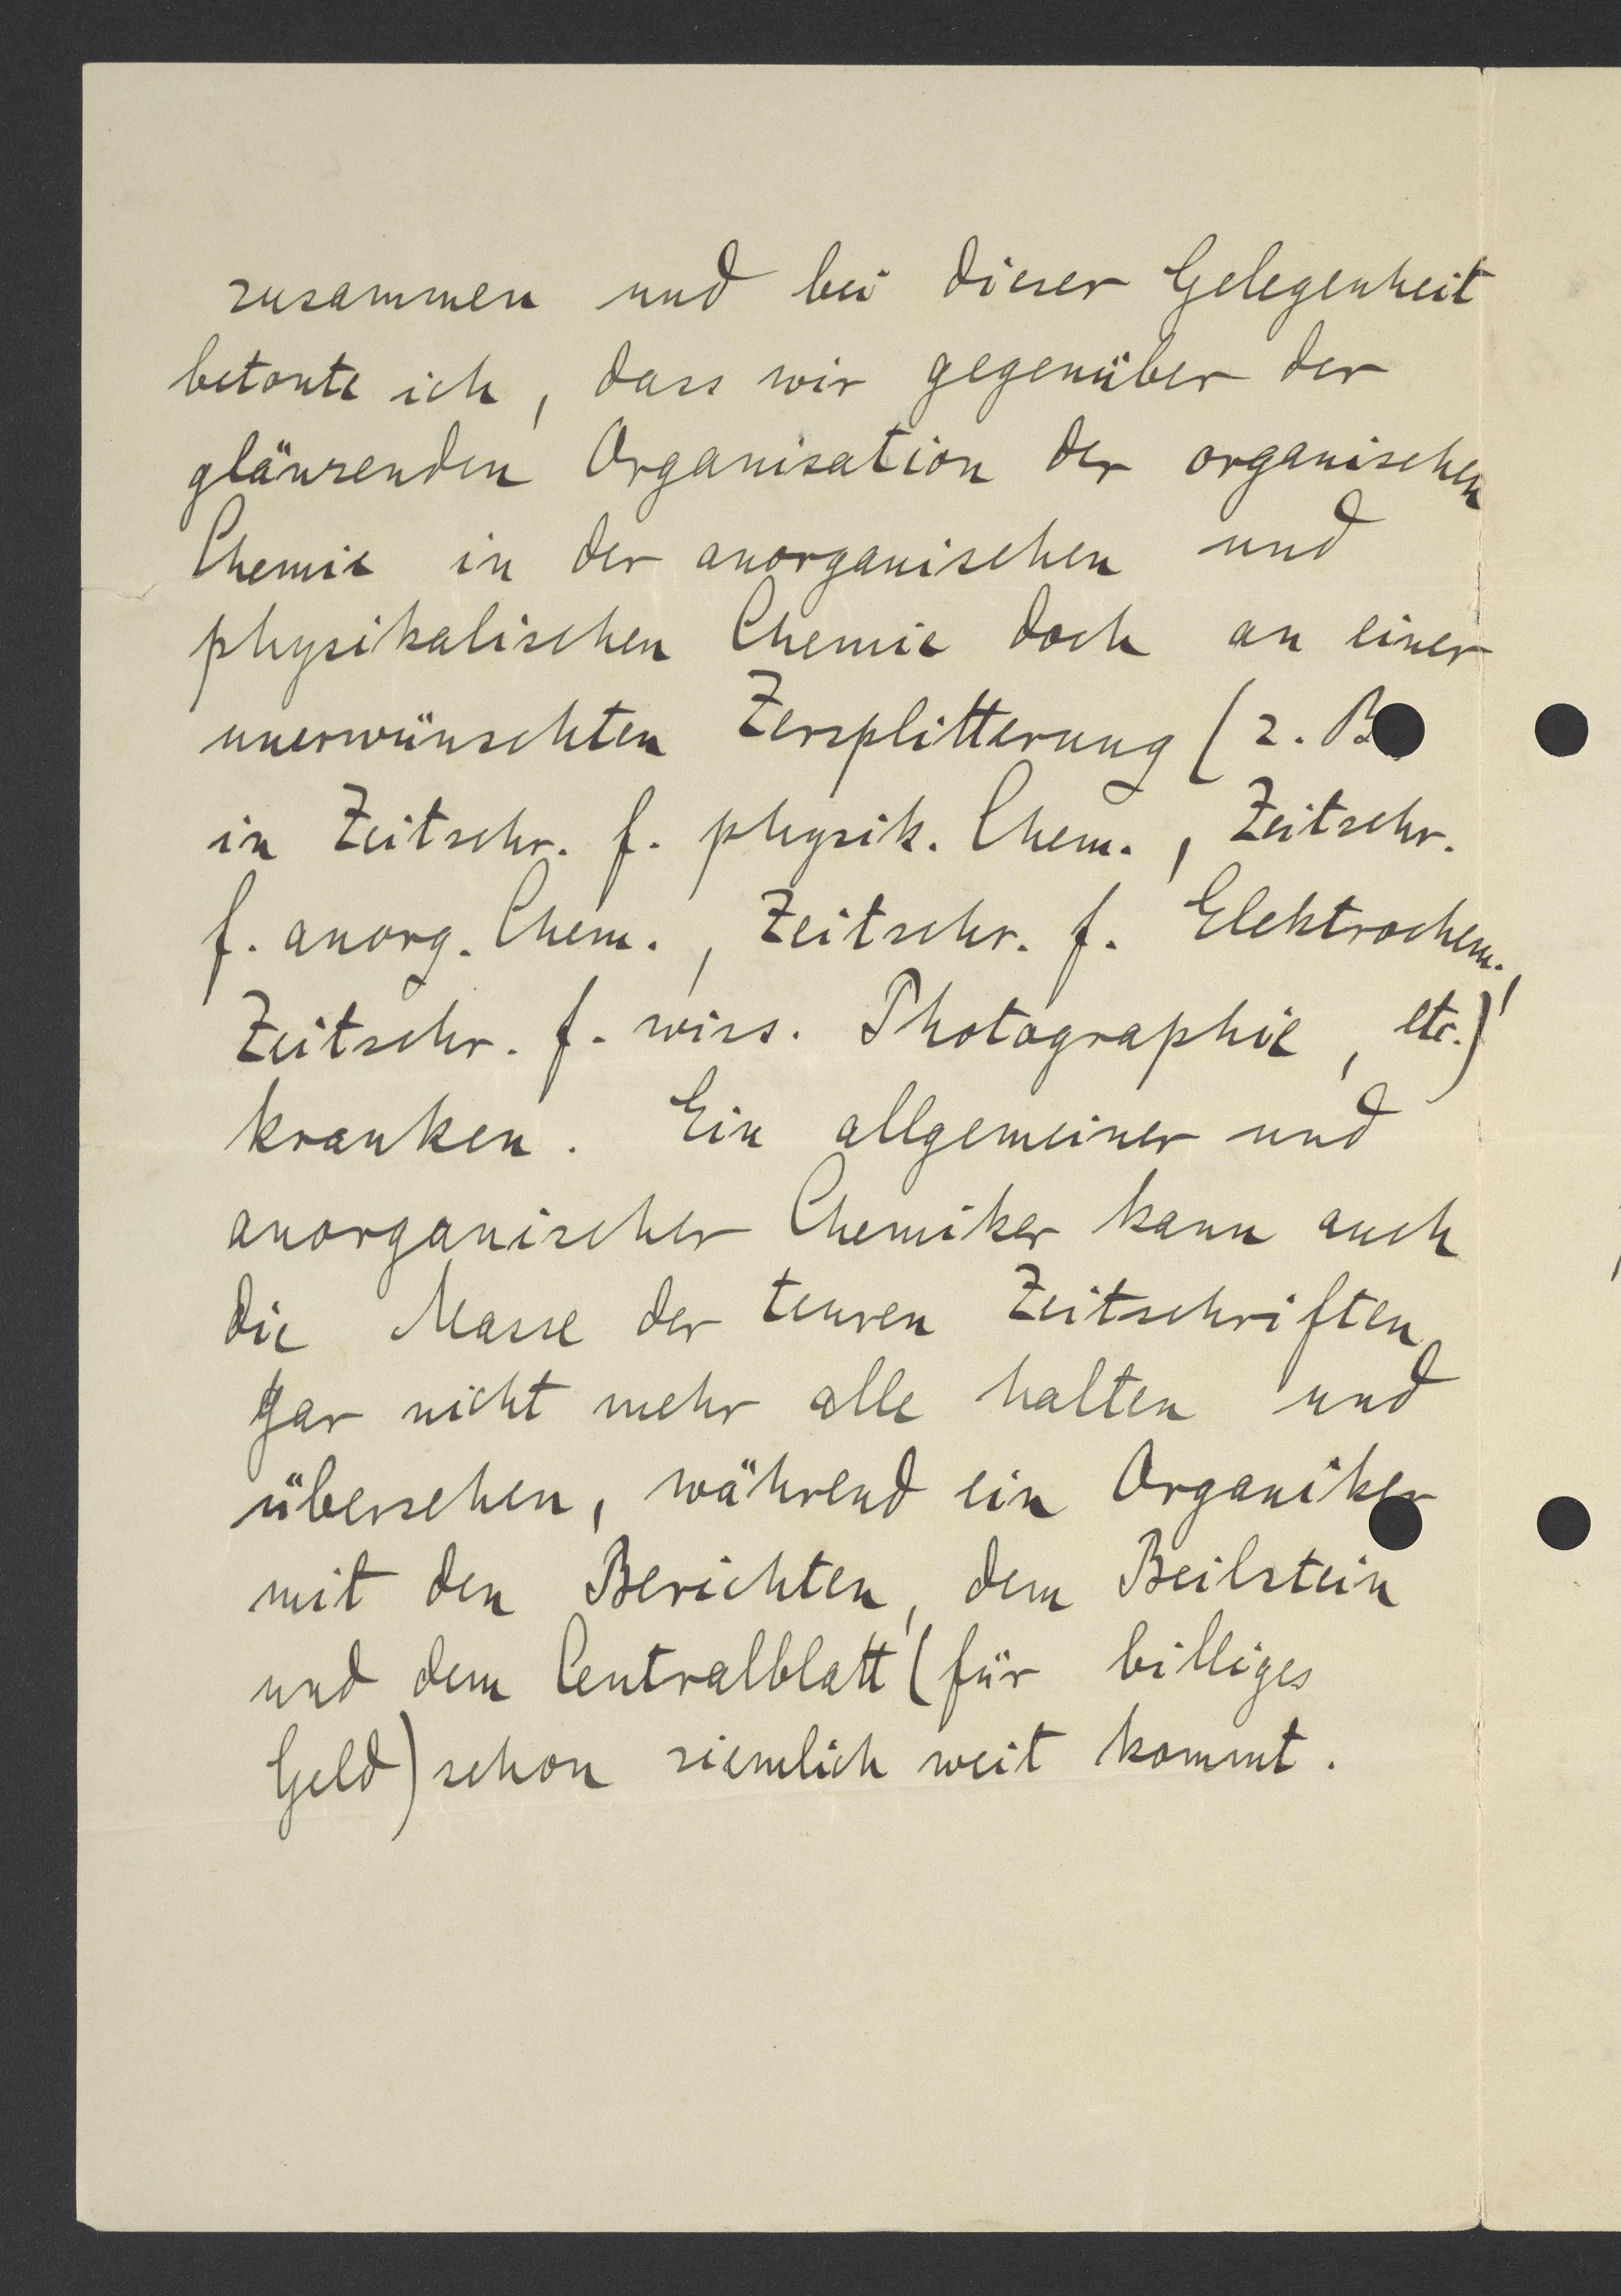 zusammen und bei dieser Gelegenheit
betonte ich, dass wir gegenüber der
glänzenden Organisation der organischen
Chemie in der anorganischen und
physikalischen Chemie doch an einer
unerwünschten Zersplitterung (z. B.
in Zeitschr. f. physik. Chem., Zeitschr.
f. anorg. Chem., Zeitschr. f. Elektrochem.,
Zeitschr. f. wiss. Photographie, etc.)
kranken. Ein allgemeiner und
anorganischer Chemiker kann auch
die Masse der teuren Zeitschriften
gar nicht mehr alle halten und
übersehen, während ein Organiker
mit den Berichten, dem Beilstein
und dem Centralblatt (für billiges
Geld) schon ziemlich weit kommt.